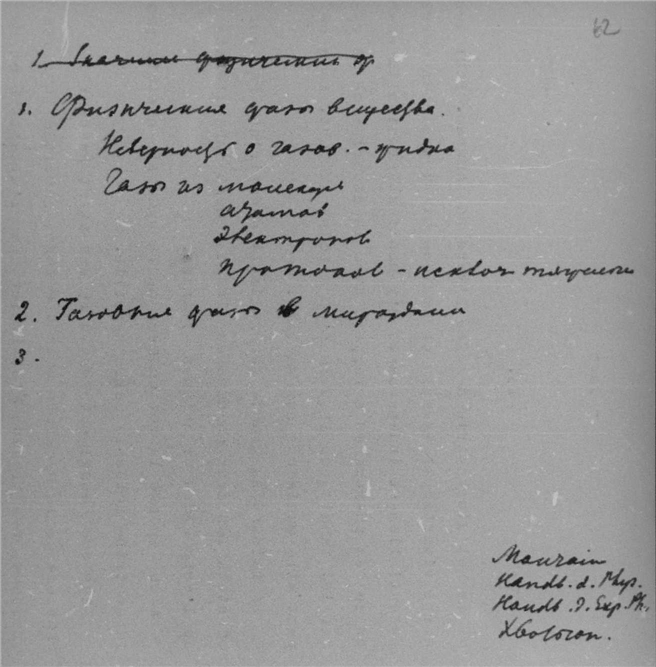 62
1. Значение физических ф
1. Физические фазы вещества.
Неверность о газов. – жидко
Газы из молекул
атомов
электронов
протонов –
2. Газовые фазы в мироздании
3.
Maurain
Handb. d. Phys.
Handb. d. Exp. Ph.
Хвольсон.